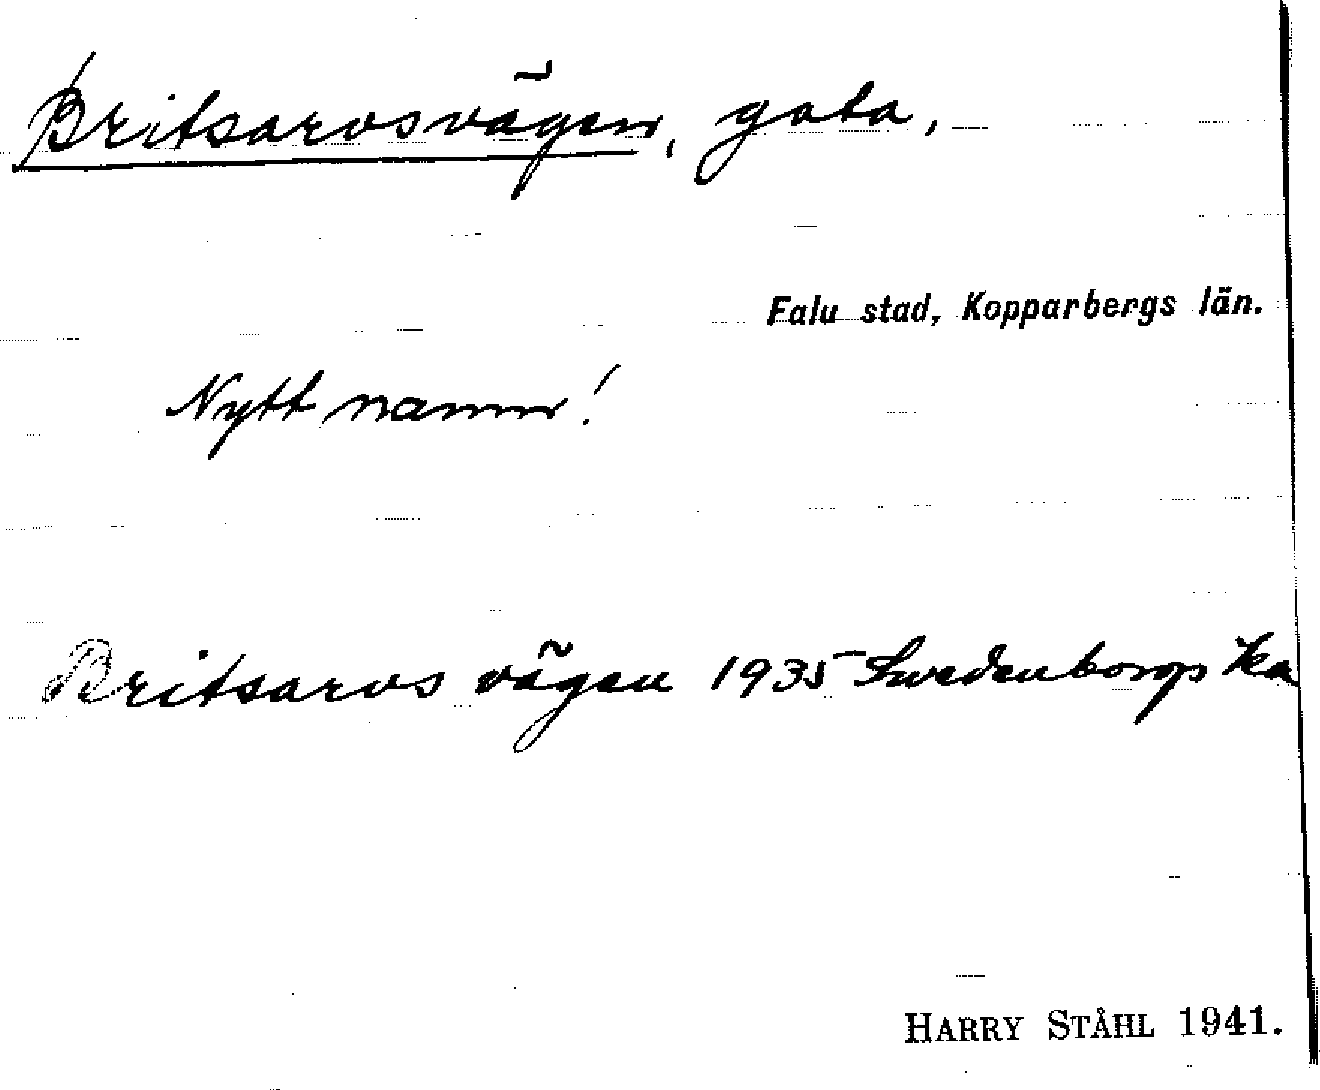 Britsarvsvägen, gata,
Falu stad, Kopparbergs län.
Nytt namn!
Britsarvs vägen 1935 Swedenborgs ka
HARRY STÅHL 1941.